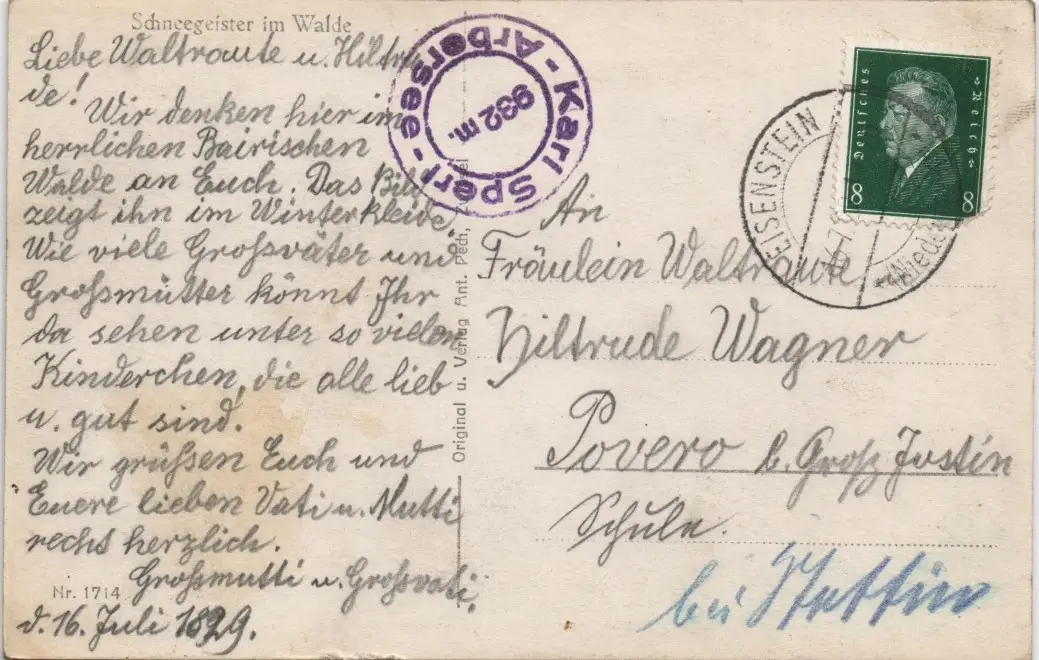 Schneegeister im Walde
Liebe Waltraute u. Hiltru-
de!
Wir denken hier im
herrlichen Bairischen
Walde an Euch. Das Bild
zeigt ihn im Winterkleide.
Wie viele Großväter und
Großmütter könnt Ihr
da sehen unter so vielen
Kinderchen, die alle lieb
u. gut sind.
Wir grüßen Euch und
Euere lieben Vati u. Mutti
recht herzlich.
Großmutti u. Großvati.
Nr. 1714
d. 16. Juli 1829.
Original u. Verlag Ant. Pech,
Karl Sperl - Arbersee -
932 m.
EISENSTEIN
Deutsches Reich
8 8
An
Fräulein Waltraute
Hiltrude Wagner
Povero b. Groß Justin
Schule.
bei Stettin